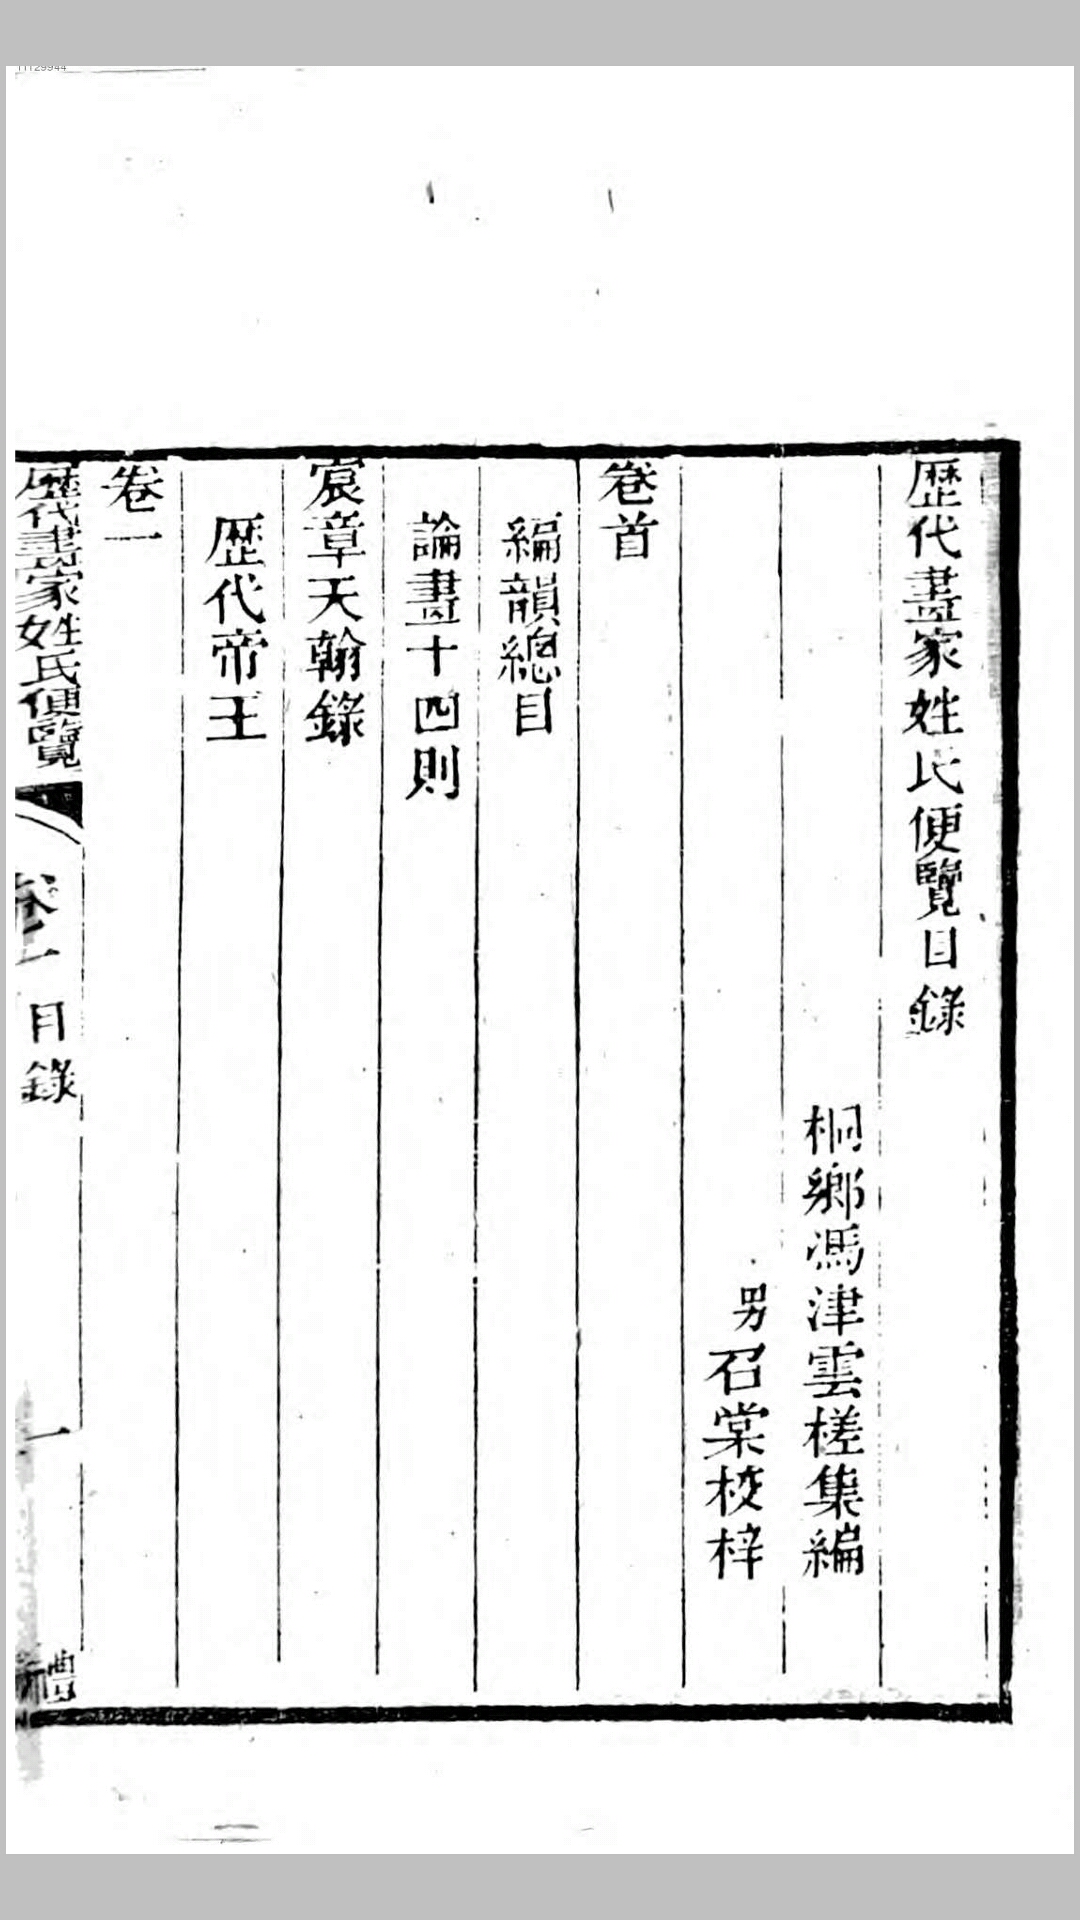 歷代畫家姓氏便覽目錄
桐鄉馮津雲槎集編
男召棠校梓
卷首
編韻總目
論畫十四則
宸章天翰錄
歷代帝王
卷一
歷代畫家姓氏便覽
目錄
一
禮
11129944